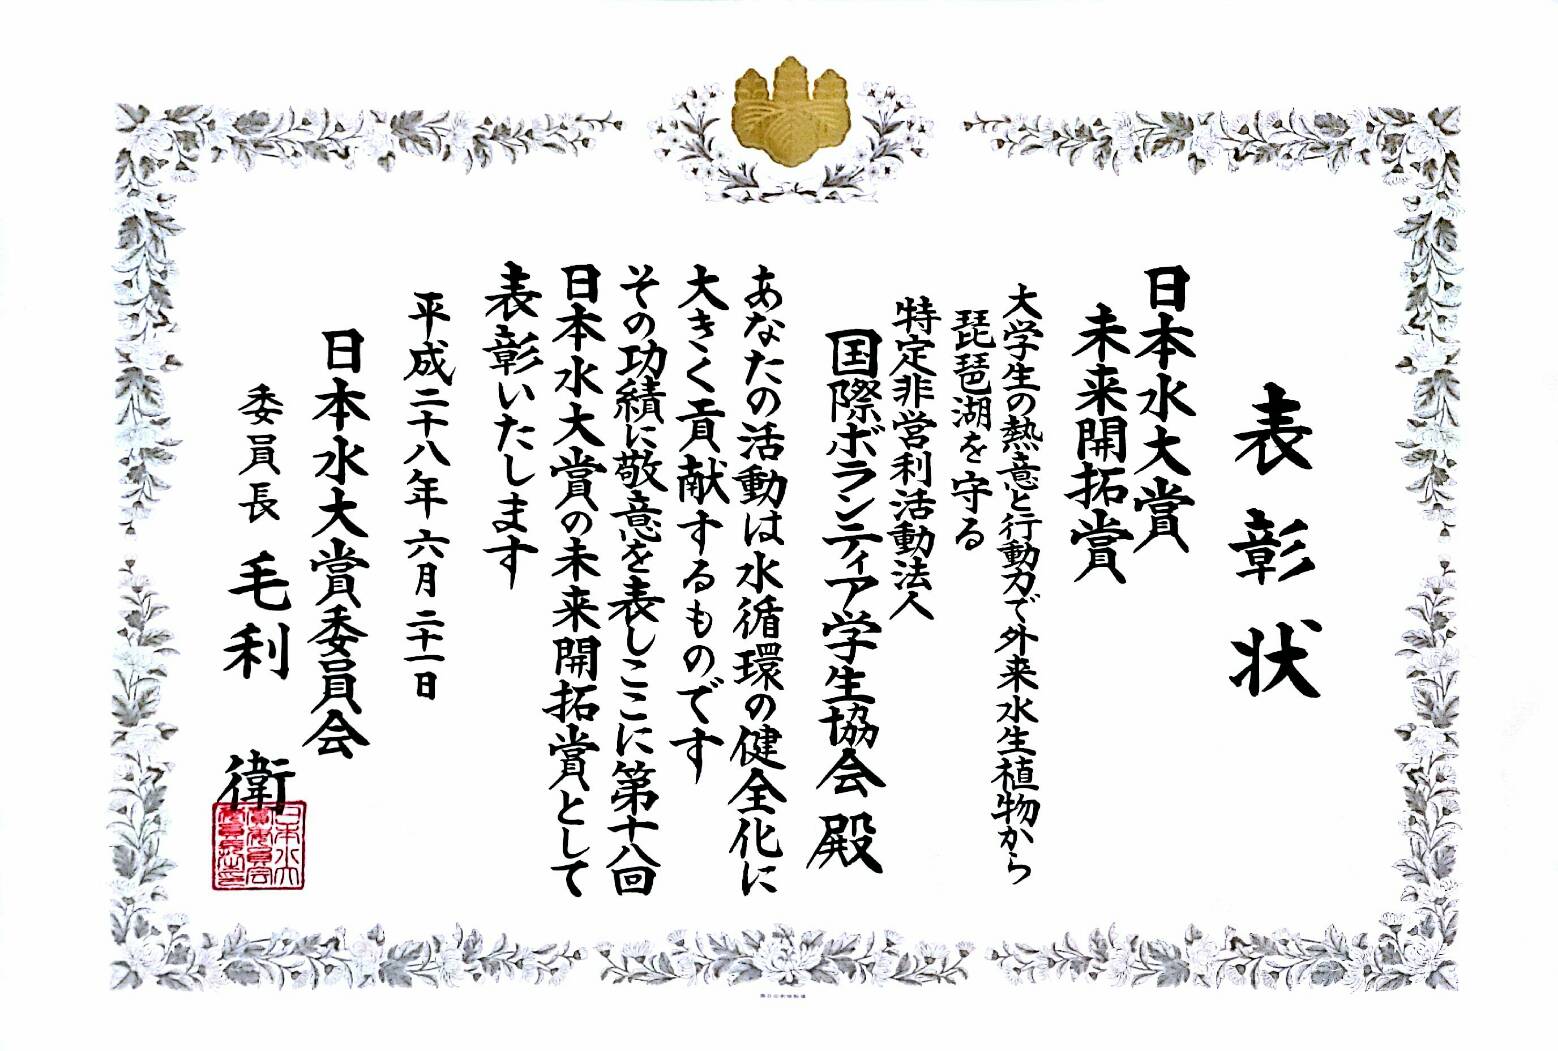 表彰状
日本水大賞
未来開拓賞
大学生の熱意と行動力で外来水生植物から
琵琶湖を守る
特定非営利活動法人
国際ボランティア学生協会 殿
あなたの活動は水循環の健全化に
大きく貢献するものです
その功績に敬意を表しここに第十八回
日本水大賞の未来開拓賞として
表彰いたします
平成二十八年六月二十一日
日本水大賞委員会
委員長 毛利 衛
日本水大
賞委員会
委員長之印